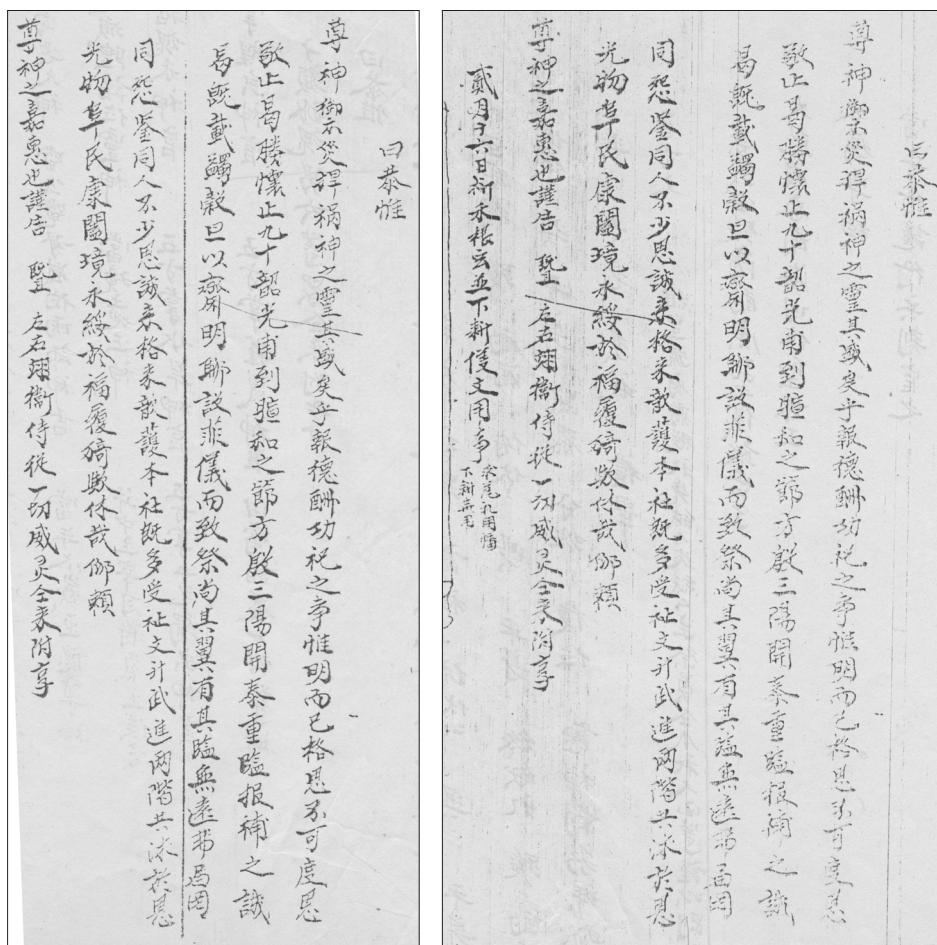 曰恭惟
尊神禦災捍禍神之靈其盛矣乎報德酬功祀之爭惟明而已格思不可度思
敬止曷勝懷止九十韶光甫到暄和之節方殷三陽開泰重臨报補之諴
曷既載蠲穀旦以齋明聊設菲儀而致祭尚其翼有其臨無遠弗届罔
同怨鉴同人不少恩誠来格来歆護本社既多受祉文升武進两階共沐於恩
光物阜民康闔境永綏於福履猗歟休哉仰頼
尊神之嘉惠也謹告 暨 左右翊衛侍従一切威灵仝来附享
曰恭惟
尊神禦災捍禍神之靈其盛矣乎報德酬功祀之爭惟明而已格思不可度思
敬止曷勝懷止九十韶光甫到暄和之節方殷三陽開泰重臨报補之諴
曷既載蠲穀旦以齋明聊設菲儀而致祭尚其翼有其臨無遠弗届罔
同怨鉴同人不少恩誠来格来歆護本社既多受祉文升武進两階共沐於恩
光物阜民康闔境永綏於福履猗歟休哉仰頼
尊神之嘉惠也謹告 暨 左右翊衛侍従一切威灵仝来附享
貳月十六日禾根云並下新文用爭